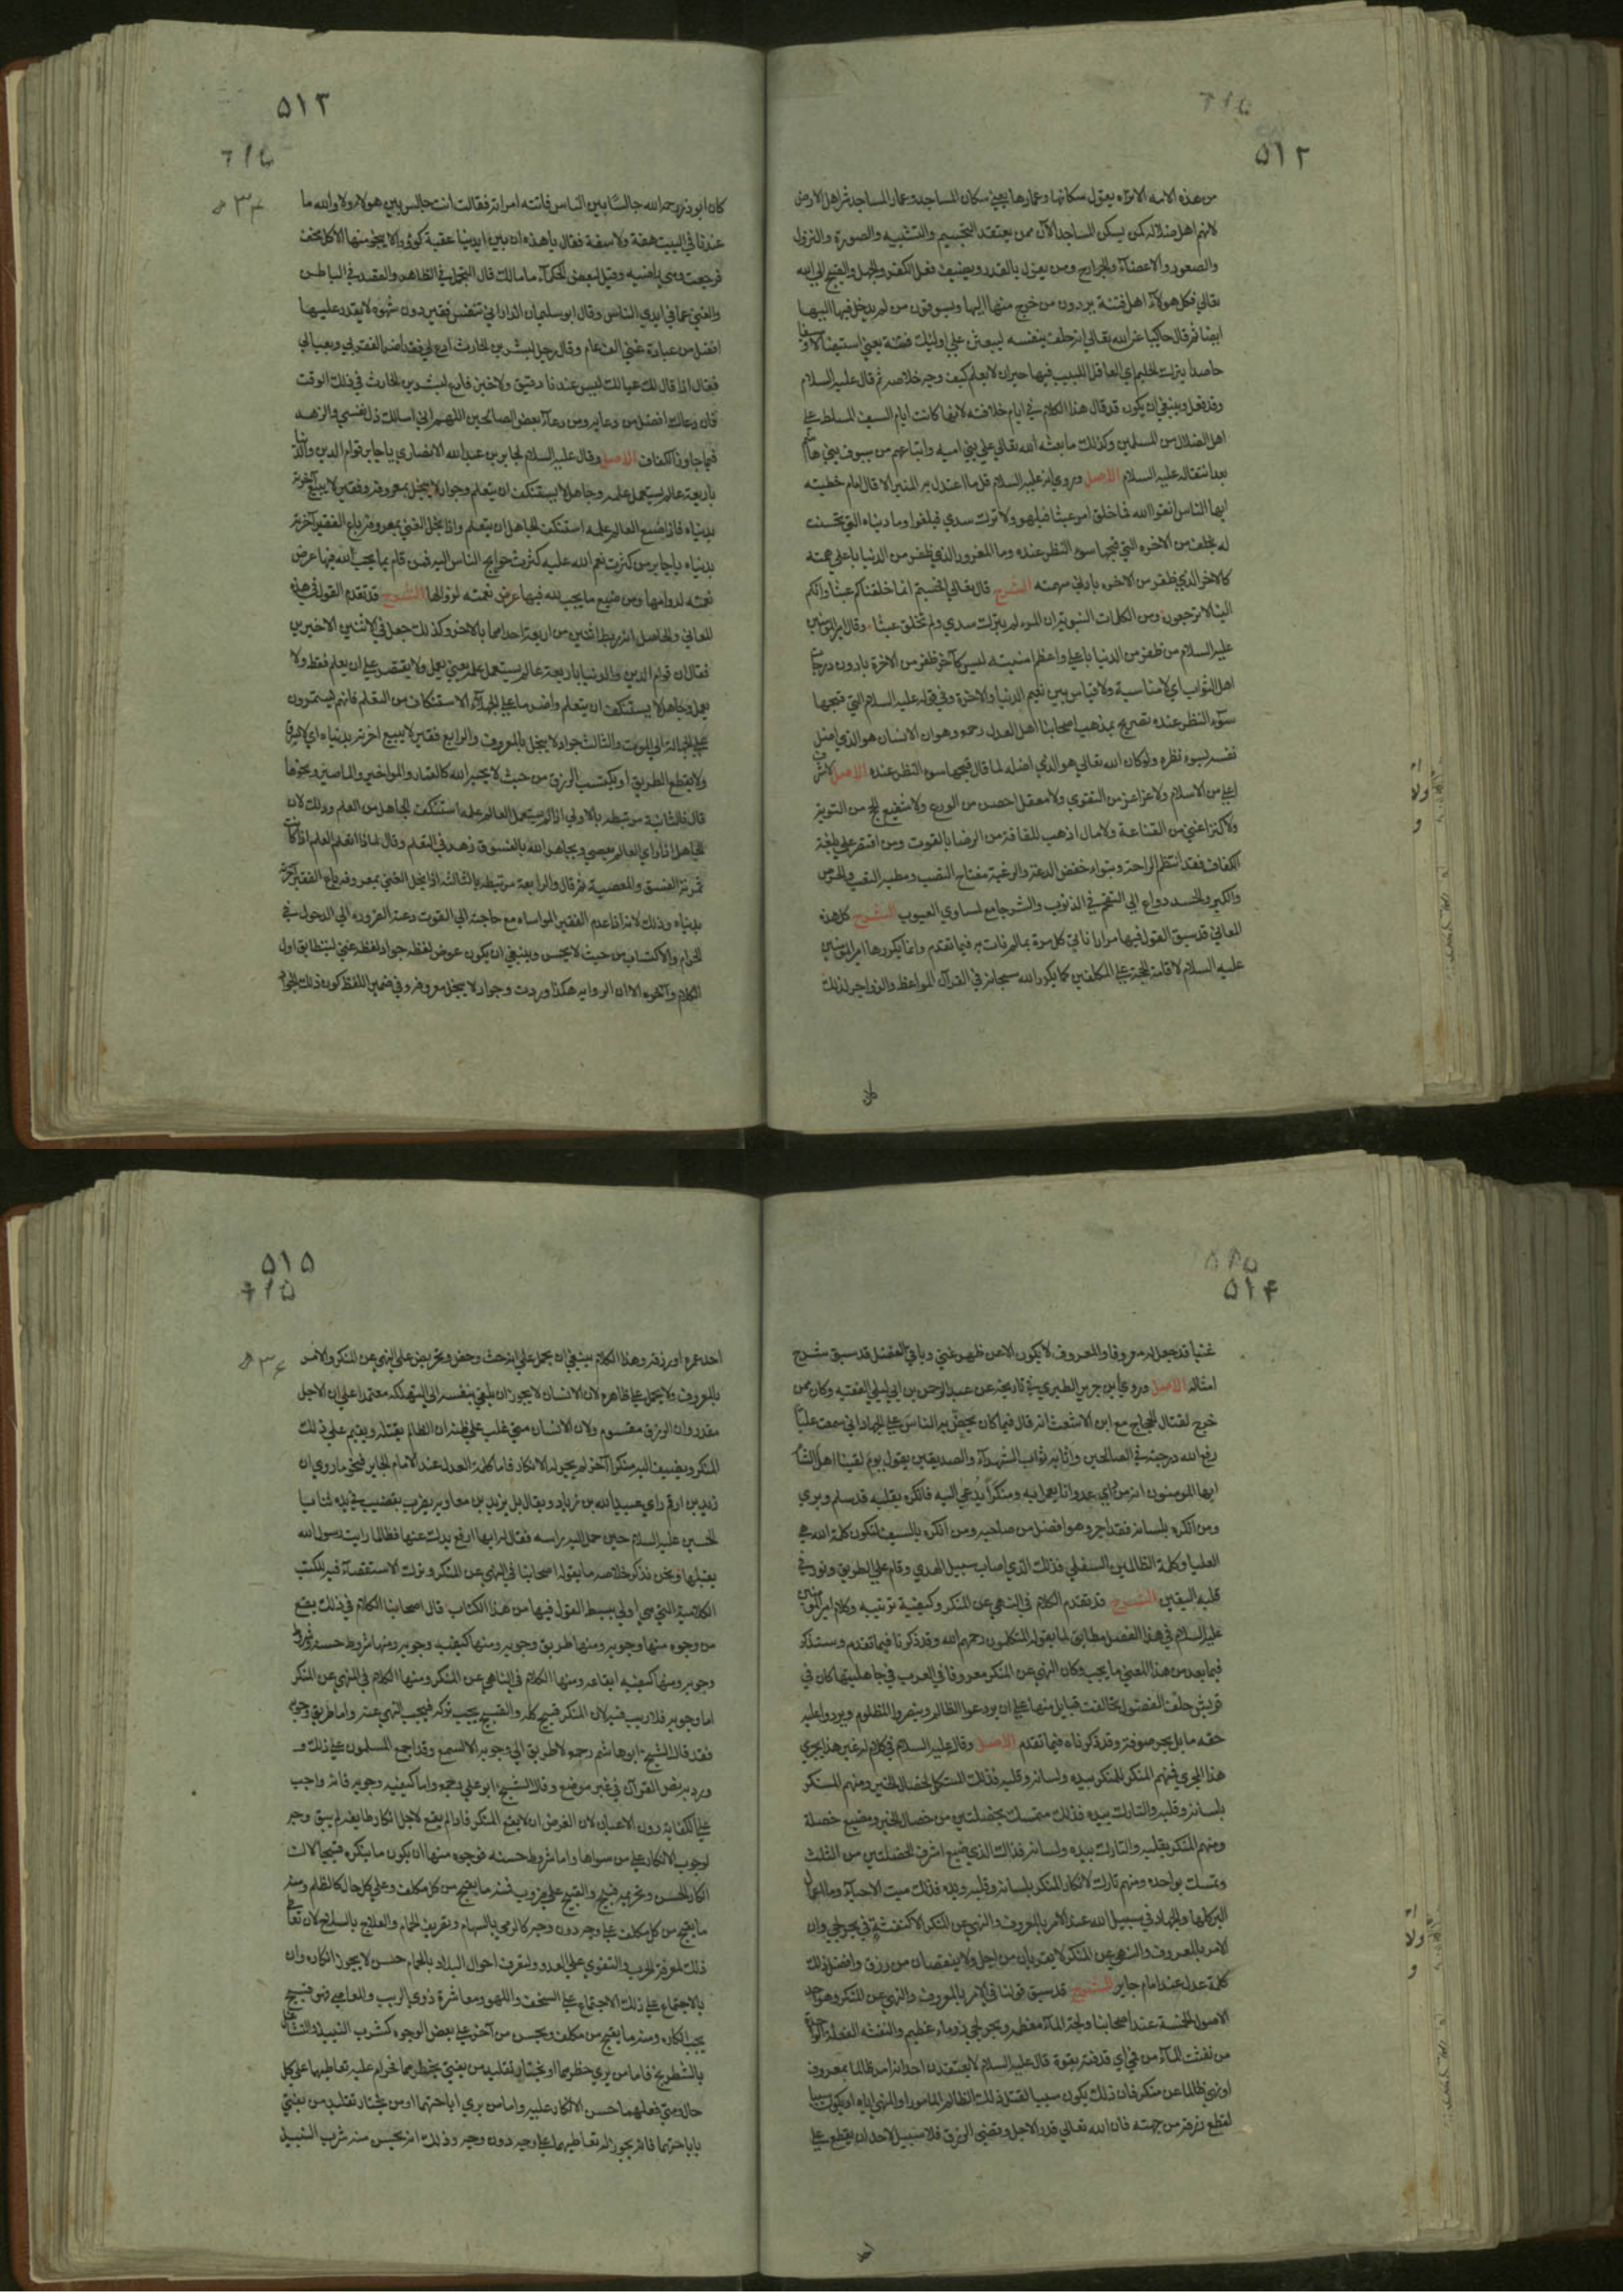 ٥١٢
من هذه الامه الاتراه يقول سكانها وعمارها يعني سكان المساجد وعمار المساجد شر اهل الارض
لانهم اهل ضلاله كمن يسكن المساجد الآن ممن يعتقد التجسيم والتشبيه والصورة والنزول
والصعود والاعضآء والجوارح ومن يقول بالقدر ويضيف فعل الكفر والجهل والقبيح الي الله
تعالي فكل هولآء اهل فتنة يردون من خرج منها اليها ويسوقون من لم يدخل فيها اليها
ايضا ثم قال حاكيا عن الله تعالي انه حلف بنفسه ليبعثن علي اوليك فتنة يعني استيصالا وسيفا
حاصدا يترك الحليم اي العاقل اللبيب فيها حيران لا يعلم كيف وجه خلاصه ثم قال عليه السلام
وقد فعل وينبغي ان يكون قد قال هذا الكلام في ايام خلافته لانها كانت ايام السيف المسلط علي
اهل الضلال من المسلمين وكذلك ما بعثه الله تعالي علي بني اميه واتباعهم من سيوف بني هاشم
بعد انتقاله عليه السلام الاصل وروي انه عليه السلام قل ما اعتدل به المنبر الا قال امام خطبته
ايها الناس اتقوا الله فما خلق امرء عبثا فيلهو ولا ترك سدي فيلغوا وما دنياه التي تحسنت
له بخلف من الاخره التي قبحها سوء النظر عنده وما المغرور الذي ظفر من الدنيا باعلي همته
كالاخر الذي ظفر من الاخره بادني سهمته الشرح قال تعالي افحسبتم انما خلقناكم عبثا وانكم
الينا لا ترجعون ومن الكلمات النبويه ان المرء لم يترك سدي ولم يخلق عبثا وقال امير المؤمنين
عليه السلام من ظفر من الدنيا باعلي واعظم امنيته ليس كآخر ظفر من الاخرة بادون درجات
اهل الثواب اي لا مناسبة ولا قياس بين نعيم الدنيا والاخرة وفي قوله عليه السلام التي قبحها
سوٓء النظر عنده تصريح بمذهب اصحابنا اهل العدل رحمه وهو ان الانسان هو الذي اضل
نفسه لسوء نظره ولو كان الله تعالي هو الذي اضله لما قال قبحها سوء النظر عنده الاصل لا شرف
اعلي من الاسلام ولا عز اعز من التقوي ولا معقل احصن من الورع ولا شفيع انجح من التوبة
ولا كنز اغني من القناعة ولا مال اذهب للفاقة من الرضا بالقوت ومن اقتصر علي بلغة
الكفاف فقد انتظم الراحة وتبواء خفض الدعة والرغبة مفتاح النصب ومطية التعب والحرص
والكبر والحسد دواع الي التقحم في الذنوب والشر جامع لمساوي العيوب الشرح كل هذه
المعاني قد سبق القول فيها مرارا ناتي كل مرة بما لم نات به فيما تقدم وانما يكررها امير المؤمنين
عليه السلام لاقامة الحجة علي المكلفين كما يكرر الله سبحانه في القرآن المواعظ والزواجر لذلك
٥١٣
كان ابوذر رحمه الله جالسا بين الناس فاتته امراته فقالت انت جالس بين هولاء ولا والله ما
عندنا في البيت هفة ولا سفة فقال يا هذه ان بين ايدينا عقبة كؤودا لا ينجو منها الا كل مخف
فرجعت وهي راضيه وقيل لبعض الحكمآء ما مالك قال التجمل في الظاهر والقصد في الباطن
والغني عما في ايدي الناس وقال ابو سليمان الداراني تنفس فقير دون شهوه لا يقدر عليها
افضل من عبادة غني الف عام وقال رجل لبشر بن الحارث ادع لي فقد اضر الفقر بي وبعيالي
فقال اذا قال لك عيالك ليس عندنا دقيق ولا خبز فادع لبشر بن الحارث في ذلك الوقت
فان دعاك افضل من دعايه ومن دعآء بعض الصالحين اللهم اني اسالك ذل نفسي والزهد
فيما جاوز الكفاف الاصل وقال عليه السلام لجابر بن عبد الله الانصاري يا جابر قوام الدين والدنيا
باربعة عالم يستعمل علمه وجاهل لا يستنكف ان يتعلم وجواد لا يبخل بمعروفه وفقير لا يبيع آخرته
بدنياه فاذا ضيع العالم علمه استنكف الجاهل ان يتعلم واذا بخل الغني بمعروفه باع الفقير آخرته
بدنياه يا جابر من كثرت نعم الله عليه كثرت حوايج الناس اليه فمن قام بما يجب لله فيها عرض
نعمته لدوامها ومن ضيع ما يجب لله فيها عرض نعمته لزوالها الشرح قد تقدم القول في هذه
المعاني والحاصل انه ربط اثنتين من اربعة احدامها بالاخر وكذلك جعل في الاثنتين الاخيرين
فقال ان قوام الدين والدنيا باربعة عالم يستعمل علمه يعني يعمل ولا يقتصر علي ان يعلم فقط ولا
يعمل وجاهل لا يستنكف ان يتعلم واضر ما علي الجهلآء الاستنكاف من التعلم فانهم يستمرون
علي الجهالة الي الموت والثالث جواد لا يبخل بالمعروف والرابع فقير لا يبيع اخرته بدنياه اي لا يسرق
ولا يقطع الطريق او يكتسب الرزق من حيث لا يحبه الله كالقمار والمواخير والمآصير ونحوها
قال فالثانية مرتبطه بالاولي اذا لم يستعمل العالم علمه استنكف الجاهل من العلم وذلك لان
الجاهل اذا راي العالم يعصي ويجاهر الله بالفسق زهد في التعلم وقال لماذا اتعلم العلم اذا كانت
ثمرته الفسق والمعصية ثم قال والرابعة مرتبطه بالثالثه اذا بخل الغني بمعروفه باع الفقير آخرته
بدنياه وذلك لانه اذا عدم الفقير المواساه مع حاجته الي القوت دعته الضروره الي الدخول في
الحرام والاكتساب من حيث لا يحسن وينبغي ان يكون عوض لفظه جواد لفظه غني ليتطابق اول
الكلام وآخره الا ان الروايه هكذا وردت وجواد لا يبخل بمعروفه وفي ضمير اللفظ كون ذلك الجواد
٥١٤
غنيا قد جعل له معروفا والمعروف لا يكون الا عن ظهر غني وباقي الفصل قد سبق شرح
امثاله الاصل وروي ابن جرير الطبري في تاريخه عن عبد الرحمن بن ابي ليلي الفقيه وكان ممن
خرج لقتال الحجاج مع ابن الاشعث انه قال فيما كان يحض به الناس علي الجهاد اني سمعت عليا
رفع الله درجته في الصالحين واثابه ثواب الشهدآء والصديقين يقول يوم لقينا اهل الشام
ايها المومنون انه من راي عدوانا يعمل به ومنكرا يدعي اليه فانكره بقلبه فقد سلم وبري
ومن انكره بلسانه فقد اجر وهو افضل من صاحبه ومن انكره بالسيف لتكون كلمة الله هي
العليا وكلمة الظالمين السفلي فذلك الذي اصاب سبيل الهدي وقام علي الطريق ونور في
قلبه اليقين الشرح قد تقدم الكلام في النهي عن المنكر وكيفية ترتيبه وكلام امير المؤمنين
عليه السلام في هذا الفصل مطابق لما يقوله المتكلمون رحمهم الله وقد ذكرنا فيما تقدم وسنذكر
فيما بعد من هذا المعني ما يجب وكان النهي عن المنكر معروفا في العرب في جاهليتها كان في
قريش حلف الفضول تحالفت قبايل منها علي ان يردعوا الظالم وينصروا المظلوم ويردوا عليه
حقه ما بل بحر صوفة وقد ذكرناه فيما تقدم الاصل وقال عليه السلام في كلام له غير هذا يجري
هذا المجري فمنهم المنكر للمنكر بيده ولسانه وقلبه فذلك المستكمل لخصال الخير ومنهم المنكر
بلسانه وقلبه والتارك بيده فذلك متمسك بخصلتين من خصال الخير ومضيع خصلة
ومنهم المنكر بقلبه والتارك بيده ولسانه فذاك الذي ضيع اشرف الخصلتين من الثلث
وتمسك بواحده ومنهم تارك لانكار المنكر بلسانه وقلبه ويده فذلك ميت الاحيآء وما اعمال
البر كلها والجهاد في سبيل الله عند الامر بالمعروف والنهي عن المنكر الا كنفثة في بحر لجي وان
الامر بالمعروف والنهي عن المنكر لا يقربان من اجل ولا ينقصان من رزق وافضل ذلك
كلمة عدل عند امام جاير الشرح قد سبق قولنا في الامر بالمعروف والنهي عن المنكر وهو احد
الاصول الخمسة عند اصحابنا ولجة المآء معظمه وبحر لجي ذو مآء عظيم والنفثه الفعلة الواحدة
من نفثت المآء من في اي قذفته بقوة قال عليه السلام لا يعتقدن احد انه امر ظالما بمعروف
او نهي ظالما عن منكر فان ذلك يكون سببا لقتل ذلك الظالم المامور او المنهي اياه او يكون سببا
لقطع رزقه من جهته فان الله تعالي قدر الاجل وقضي الرزق فلا سبيل لاحد ان يقطع علي
٥١٥
احد عمره او رزقه وهذا الكلام ينبغي ان يحمل علي انه حث وحض وتحريض علي النهي عن المنكر والامر
بالمعروف ولا يحمل علي ظاهره لان الانسان لا يجوز ان يلقي بنفسه الي التهلكه معتمدا علي ان الاجل
مقدر وان الرزق مقسوم ولان الانسان متي غلب علي ظنه ان الظالم يقتله ويقيم علي ذلك
المنكر ويضيف اليه منكرا آخر لم يجز له الانكار فاما كلمة العدل عند الامام الجاير فنحو ما روي ان
زيد بن ارقم راي عبيد الله بن زياد ويقال بل يزيد بن معاويه يضرب بقضيب في يده ثنايا
الحسين عليه السلام حين حمل اليه راسه فقال له ايها ارفع يدك عنها فطالما رايت رسول الله
يقبلها ونحن نذكر خلاصه ما يقوله اصحابنا في النهي عن المنكر ونترك الاستقصآء فيه للكتب
الكلامية التي هي اولي ببسط القول فيها من هذا الكتاب قال اصحابنا الكلام في ذلك يقع
من وجوه منها وجوبه ومنها طريق وجوبه ومنها كيفيه وجوبه ومنها شروط حسنه وشروط
وجوبه ومنها كيفيه ايقاعه ومنها الكلام في الناهي عن المنكر ومنها الكلام في النهي عن المنكر
اما وجوبه فلا ريب فيه لان المنكر قبيح كله والقبيح يجب تركه فيجب النهي عنه واما طريق وجوبه
فقد قال الشيخ ابو هاشم رحمه لا طريق الي وجوبه الا السمع وقد اجمع المسلمون علي ذلك و
ورد به نص القرآن في غير موضع وقال الشيخ ابو علي رحمه واما كيفيه وجوبه فانه واجب
علي الكفايه دون الاعيان لان الغرض ان لا يقع المنكر فاذا لم يقع لاجل انكار طايفه لم يبق وجه
لوجوب الانكار علي من سواها واما شروط حسنه فوجوه منها ان يكون ما ينكره قبيحا لان
انكار الحسن وتحريمه قبيح والقبيح علي ضروب فمنه ما يقبح من كل مكلف وعلي كل حال كالظلم ومنه
ما يقبح من كل مكلف علي وجه دون وجه كالرمي بالسهام وتصريف الحمام والعلاج بالسلاح لان تعاطي
ذلك لمعرفة الحرب والتقوي علي العدو ولتعرف احوال البلاد بالحمام حسن لا يجوز انكاره وان
بالاجتماع علي ذلك الاجتماع علي السخف واللهو ومعاشرة ذوي الريب والمعاصي فهو قبيح
يجب انكاره ومنه ما يقبح من مكلف ويحسن من آخر علي بعض الوجوه كشرب النبيذ والتشاغل
بالشطرنج فاما من يري حظرهما او يختار تقليد من يفتي بحظرهما فحرام عليه تعاطيهما علي كل
حال ومتي فعلهما حسن الانكار عليه واما من يري اباحتهما او من يختار تقليد من يفتي
باباحتهما فانه يجوز له تعاطيهما علي وجه دون وجه وذلك انه يحسن منه شرب النبيذ